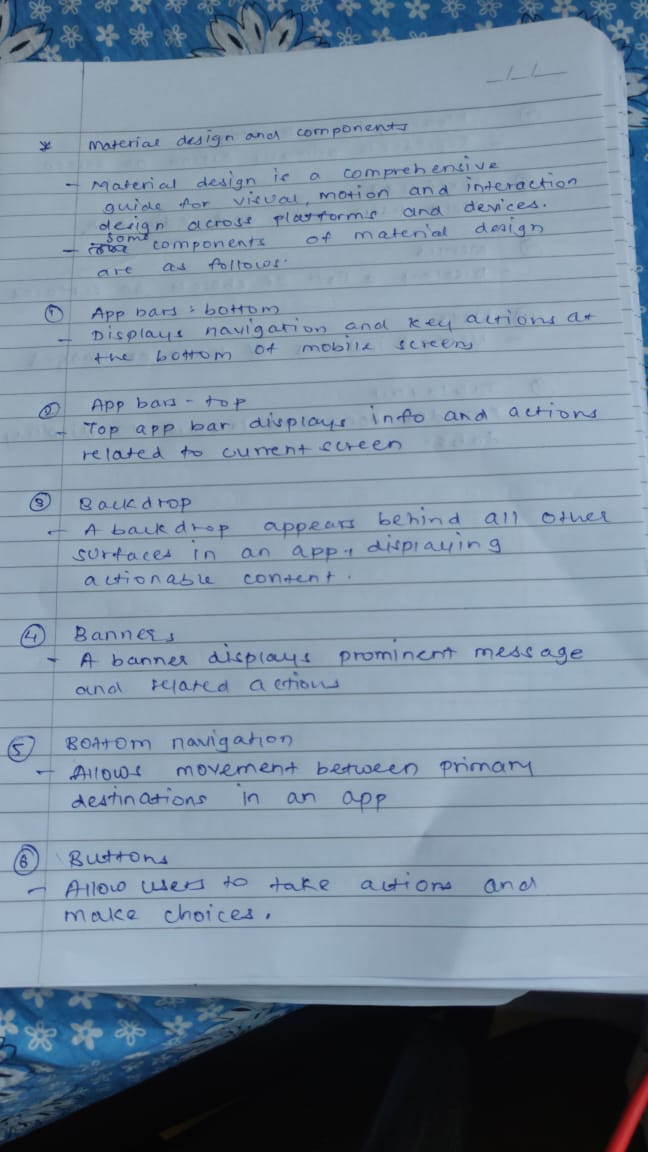 * Material design and components
- Material design is a comprehensive
guide for visual, motion and interaction
design across platforms and devices.
- some components of material design
are as follows.
① App bars : bottom
- Displays navigation and key actions at
the bottom of mobile screens
② App bars - top
- Top app bar displays info and actions
related to current screen
③ Backdrop
- A backdrop appears behind all other
surfaces in an app, displaying
actionable content.
④ Banners
- A banner displays prominent message
and related actions
⑤ Bottom navigation
- Allows movement between primary
destinations in an app
⑥ Buttons
- Allow users to take actions and
make choices.